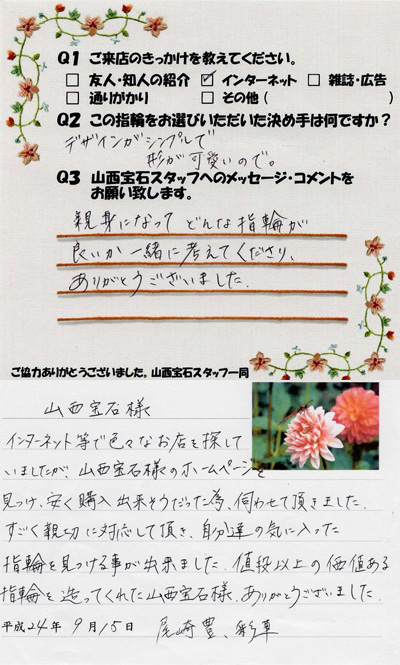 Q1 ご来店のきっかけを教えてください。
□ 友人・知人の紹介 ☑ インターネット □ 雑誌・広告
□ 通りがかり □ その他 ( )
Q2 この指輪をお選びいただいた決め手は何ですか?
デザインがシンプルで
形が可愛いので。
Q3 山西宝石スタッフへのメッセージ・コメントを
お願い致します。
親身になって どんな指輪が
良いか一緒に考えてくださり、
ありがとうございました。
ご協力ありがとうございました。山西宝石スタッフ一同
山西宝石様
インターネット等で色々なお店を探して
いましたが、山西宝石様のホームページを
見つけ、安く購入出来そうだった為、伺わせて頂きました。
すごく親切に対応して頂き、自分達の気に入った
指輪を見つける事が出来ました。値段以上の価値ある
指輪を造ってくれた山西宝石様、ありがとうございました。
平成24年 9月15日 尾崎豊、彩